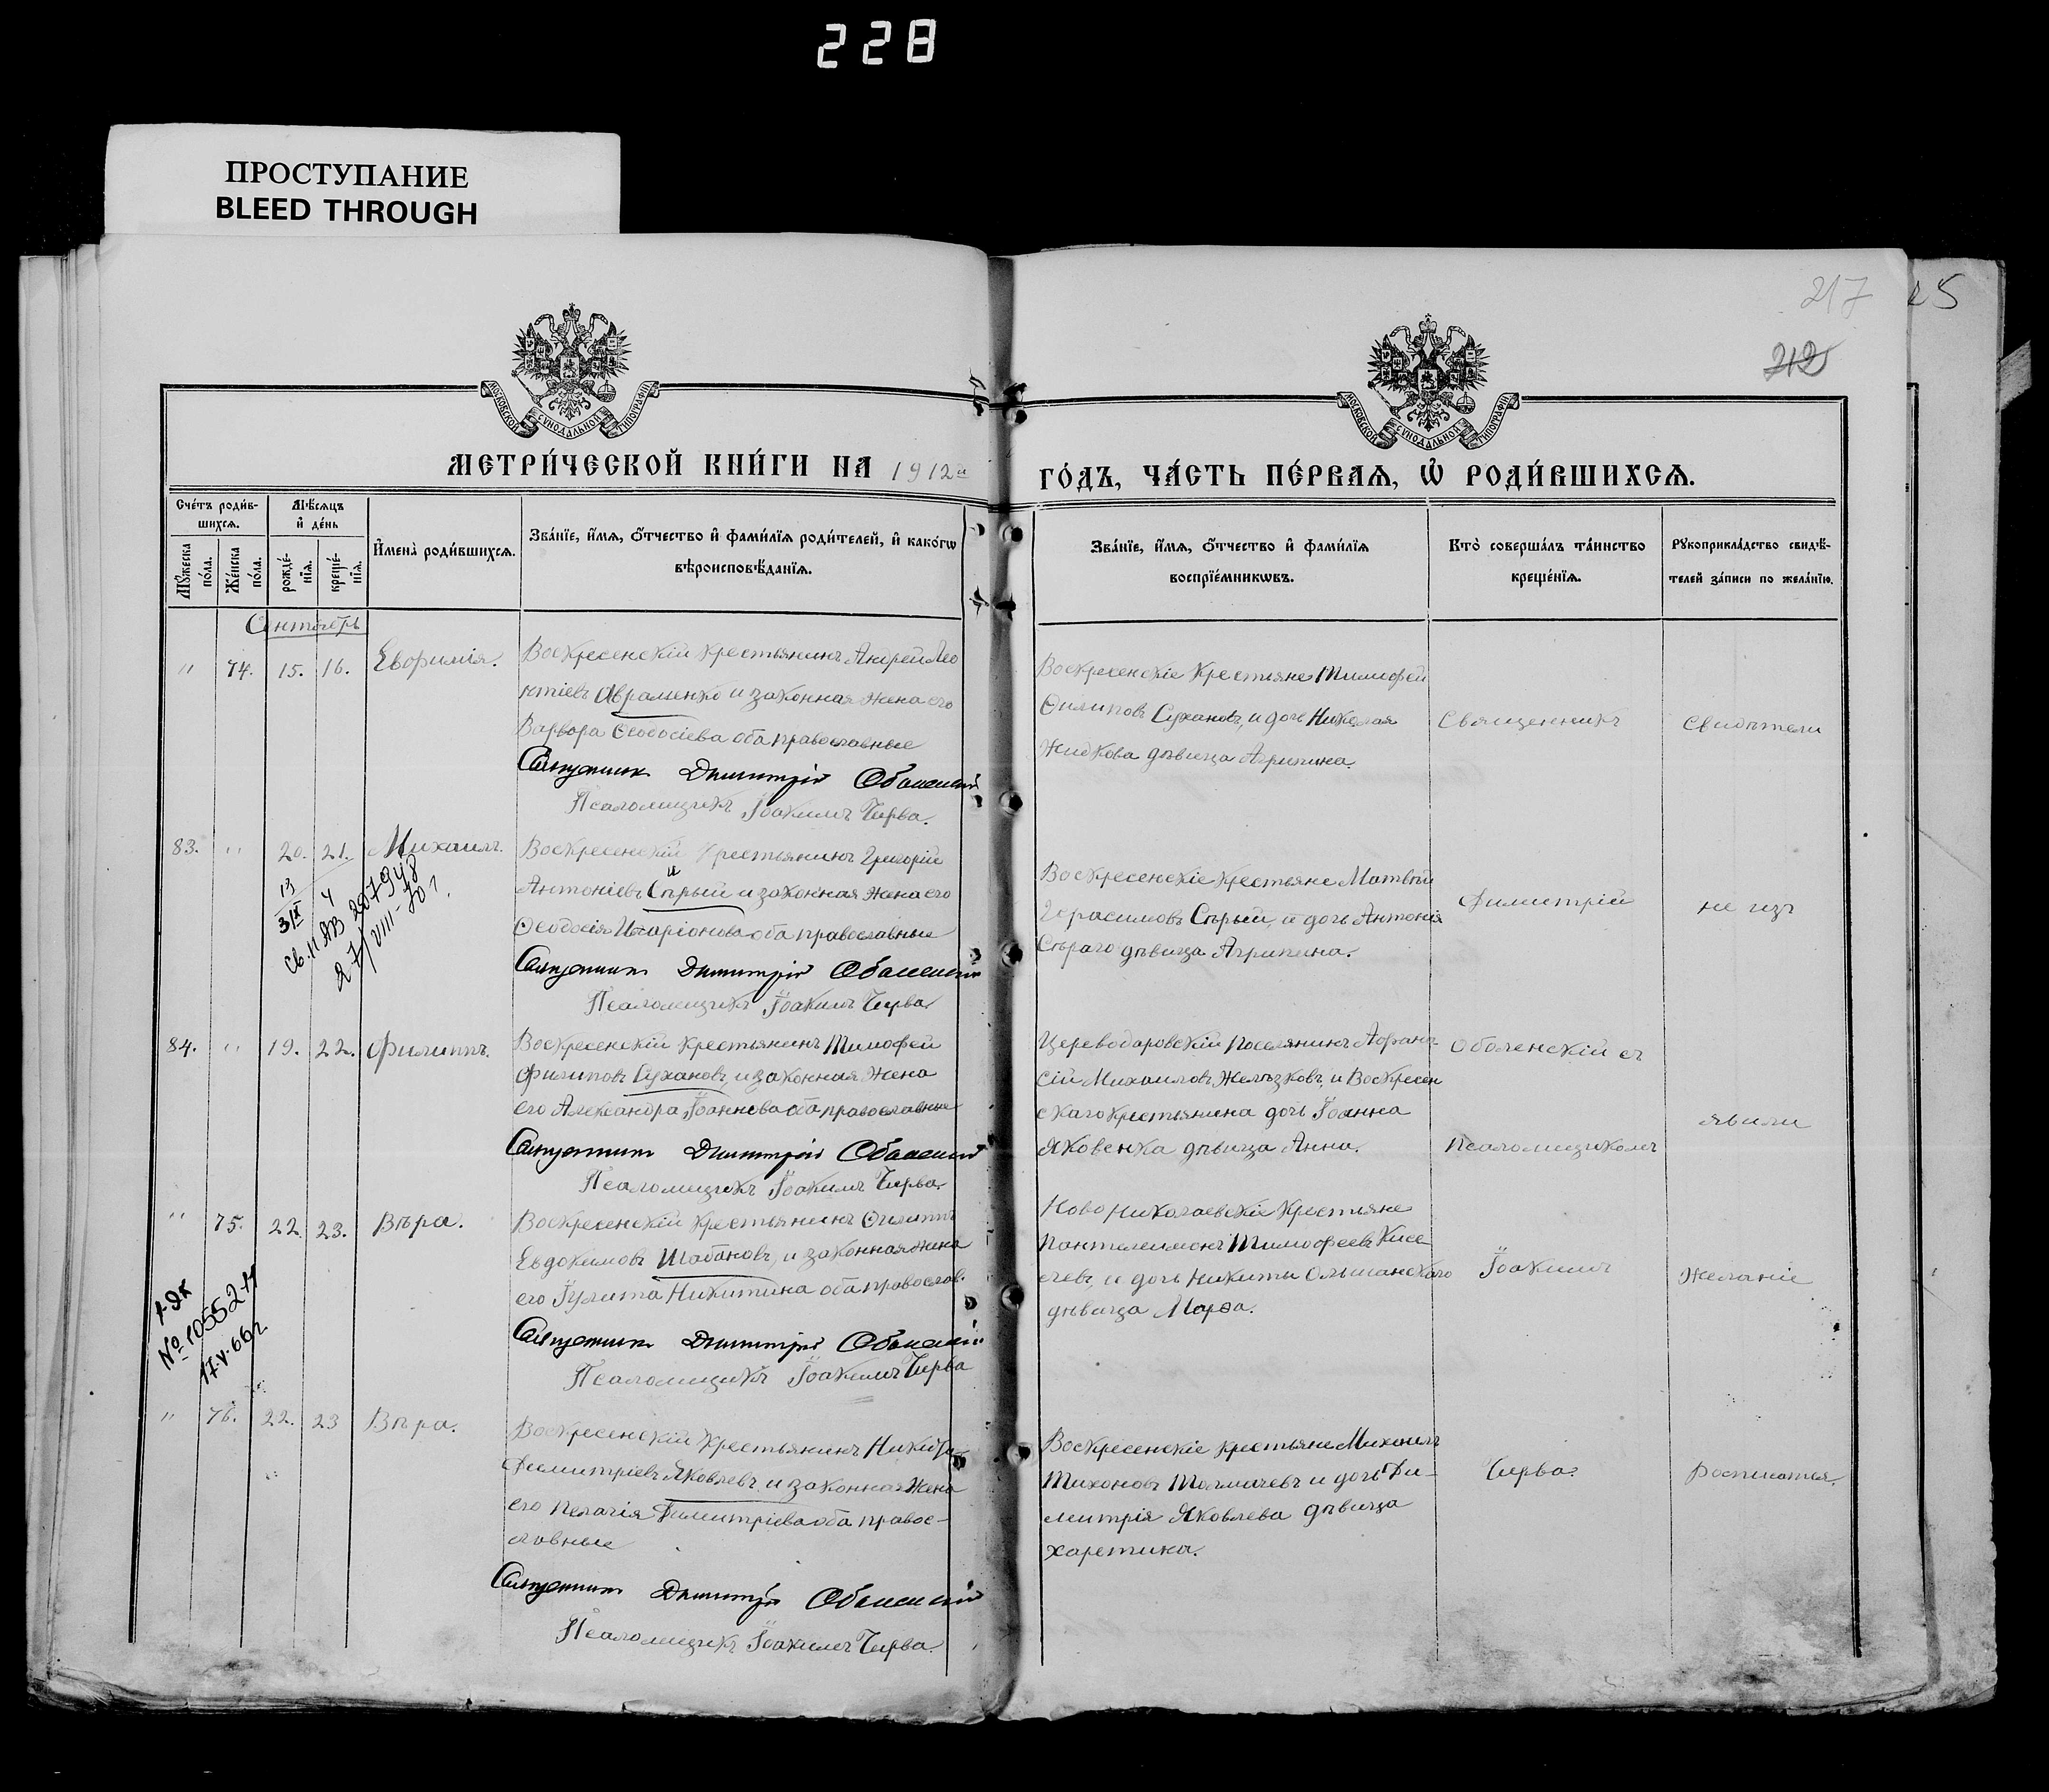 228
ПРОСТУПАНИЕ
BLEED THROUGH
217
25
212
МОСКОВСКОЙ СѴНОДАЛЬНОЙ ТИПОГРАФІИ
МОСКОВСКОЙ СѴНОДАЛЬНОЙ ТИПОГРАФІИ
МЕТРИ́ЧЕСКОЙ КНИ́ГИ НА 1912й
ГО́ДЪ, ЧА́СТЬ ПЕ́РВАѦ, Ѡ҆ РОДИ́ВШИХСѦ.
Сче́тъ роди́в-
шихсѧ.
Мꙋ́жеска по́ла.
Же́нска по́ла.
Мѣ́сѧцъ
и҆ де́нь
рожде́-
нїѧ.
креще́-
нїѧ.
И҆мена̀ роди́вшихсѧ.
Зва́нїе, и҆́мѧ, ѻ҆́тчество и҆ фами́лїѧ роди́телей, и҆ како́гѡ
вѣроисповѣ́данїѧ.
Зва́нїе, и҆́мѧ, ѻ҆́тчество и҆ фами́лїѧ
воспрїе́мникѡвъ.
Кто̀ соверша́лъ та́инство
креще́нїѧ.
Рꙋкоприкла́дство свидѣ́-
телей за́писи по жела́нїю.
Сентябрь
" 74. 15. 16. Евфимія.
Воскресенскій крестьянинъ Андрей Лео
нтіевъ Авраменко и законная жена его
Варвара Ѳеодосіева оба православные
Священник Димитрій Оболенскій
Псаломщикъ Іоакимъ Чирва.
Воскресенскіе крестьяне Тимофей
Филиповъ Сухановъ, и дочь Николая
Жидкова дѣвица Агрипина.
Священникъ
Свидѣтели
83. " 20. 21. Михаилъ.
13
3 IX
Св. II ЯВ 207948
27/VIII-70 г.
Воскресенскій крестьянинъ Григорій
Антоніевъ Сѣрый и законная жена его
Ѳеодосія Иларіонова оба православные
Священник Димитрій Оболенскій
Псаломщикъ Іоакимъ Чирва
Воскресенскіе крестьяне Матвѣй
Герасимовъ Сѣрый, и дочь Антонія
Сѣраго дѣвица Агрипина.
Димитрій
не изъ
84. " 19. 22. Филиппъ.
Воскресенскій крестьянинъ Тимофей
Филиповъ Сухановъ, и законная жена
его Александра Іоаннова оба православные
Священник Димитрій Оболенскій
Псаломщикъ Іоакимъ Чирва.
Цареводаровскій поселянинъ Афана-
сій Михаиловъ Желѣзковъ, и Воскресен
скаго крестьянина дочь Іоанна
Яковенка дѣвица Анна.
Оболенскій съ
Псаломщикомъ
явили
" 75. 22. 23. Вѣра.
№ 10552-Н
17.V.66 г.
Воскресенскій крестьянинъ Филиппъ
Евдокимовъ Шабановъ, и законная жена
его Іулита Никитина оба православ.
Священник Димитрій Оболенскій
Псаломщикъ Іоакимъ Чирва
Ново Николаевскіе крестьяне
Пантелеимонъ Тимофеевъ Кисе
левъ, и дочь Никиты Ольшанскаго
дѣвица Марѳа.
Іоакимъ
желаніе
" 76. 22. 23 Вѣра.
Воскресенскій крестьянинъ Никита
Димитріевъ Яковлевъ, и законная жена
его Пелагія Димитріева оба правос-
лавные
Священник Димитрій Оболенскій
Псаломщикъ Іоакимъ Чирва
Воскресенскіе крестьяне Михаилъ
Тихоновъ Толмачевъ и дочь Ди-
митрія Яковлева дѣвица
Харетина.
Чирва.
росписатья.